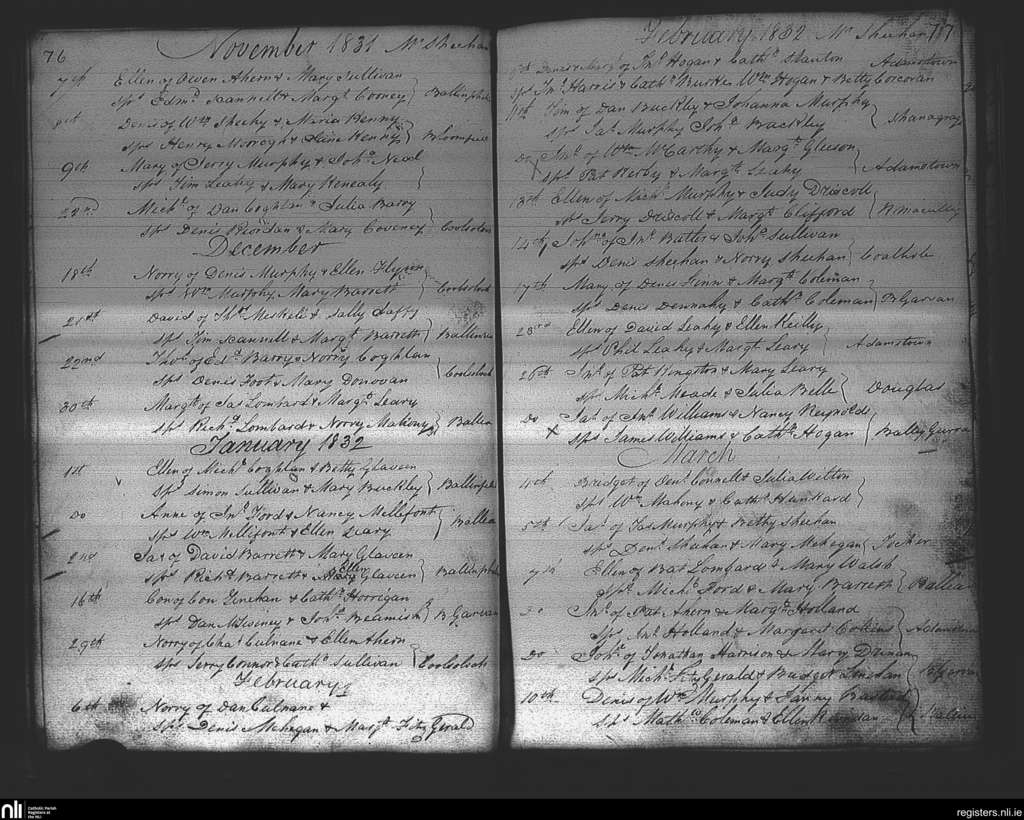 76 November 1831 Mr Sheehan
7th Ellen of Owen Ahern & Mary Sullivan
sps Edmd Scannell & Margt Cooney } Ballinphel
8th Denis of Wm Sheehy & Maria Kenny
sps Henry Morrogh & Jane Kenny }
9th Mary of Jerry Murphy & Joha Neal
sps Tim Leahy & Mary Kenealy }
22nd Michl of Dan Coghlan & Julia Barry
sps Denis Riordan & Mary Coveney }
December
18th Norry of Denis Murphy & Ellen Flynn
sps Wm Murphy Mary Barrett }
21st David of Thos & Sally
sps Tim Scannell & Margt Barrett }
22nd Thos of Edd Barry & Norry Coghlan
sps Denis Foot & Mary Donovan }
30th Margt of Jas Lombard & Margt Leary
sps Richd Lombard & Norry Mahony } Ballea
January 1832
1st Ellen of Michl Coghlan & Betty Glaveen
sps Simon Sullivan & Mary Buckley } Ballinphel
Do Anne of Jno Ford & Nancy Mellifont
sps Wm Mellifont & Ellen Leary } Ballea
2nd Jas of David Barrett & Mary Glaveen
sps Richd Barrett & Ellen Glaveen } Ballinphel
16th Con of Con Linehan & Cathe Horrigan
sps Dan & Joha Beamish } B Garvan
29th Norry of Chas Culnane & Ellen Ahern
sps Jerry Connor & Cathe Sullivan }
February
6th Norry of Dan Culnane &
sps Denis Mehegan & Margt Fitz Gerald
February 1832 Mr Sheehan 77
Denis & Mary of Jno Hogan & Cathe Stanton Adamstown
sps Jno Harris & Cathe Burke Wm Hogan & Betty Corcoran
11th Tim of Dan Buckley & Johanna Murphy
sps Pat Murphy Joha Buckley } Shanagray
Do Jno of Wm McCarthy & Margt Gleeson
sps Pat Kerby & Margt Leahy } Adamstown
13th Ellen of Michl Murphy & Judy Driscoll
sps Jerry Driscoll & Margt Clifford }
14th of Jno Batter & Joha Sullivan
sps Denis Sheehan & Norry Sheehan }
17th Mary of Denis Finn & Margt Coleman
sps Denis Dennahy & Cathe Coleman } B Garvan
23rd Ellen of David Leahy & Ellen Reilly
sps Phil Leahy & Margt Leary } Adamstown
26th Jno of Pat Kingston & Mary Leary
sps Michl Meade & Julia Belle } Douglas
Do Jas of Jno Williams & Nancy Reynolds
X sps James Williams & Cathe Hogan }
March
4th Bridget of Denis Connell & Julia Wilton
sps Wm Mahony & Cathe Hunkard }
5th Jas of Jas Murphy & Betty Sheehan
sps Danl Sheehan & Mary Mehegan }
7th Ellen of Bat Lombard & Mary Walsh
sps Michl Ford & Mary Barrett } Ballea
Do Jno of Pat Ahern & Margt Holland
sps Jno Holland & Margaret }
Do Joha of Jonathan Harrison & Mary Drinan
sps Michl Fitz Gerald & Bridget Linehan }
10th Denis of Wm Murphy & Fanny
sps Coleman & Ellen Riordan }
nli Catholic Parish Registers at the NLI
registers.nli.ie